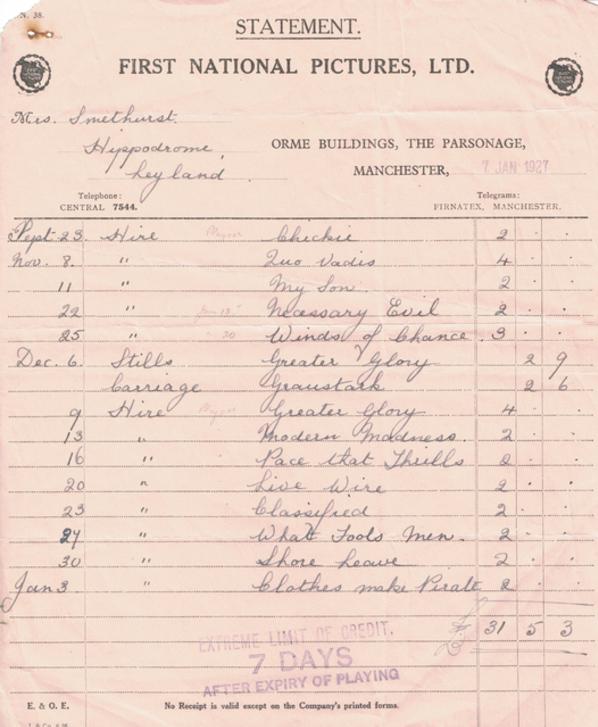 N. 38.
STATEMENT.
FIRST NATIONAL PICTURES, LTD.
Mrs. Smethurst.
Hippodrome,
Leyland.
ORME BUILDINGS, THE PARSONAGE,
MANCHESTER, 7 JAN 1927
Telephone: CENTRAL 7544.
Telegrams: FIRNATEX, MANCHESTER.
Sept 23. Hire Chickie 2 . .
Nov. 8. " Quo Vadis 4 . .
11 " My Son. 2 . .
22 " Necessary Evil 2 . .
25 " 20 Winds of Chance. 3 . .
Dec. 6. Stills Greater Glory 2 9
Carriage Graustark 2 6
9 Hire Greater Glory 4 . .
13 " Modern Madness. 2 . .
16 " Pace that Thrills 2 . .
20 " Live Wire 2 . .
23 " Classified 2 . .
27 " What Fools Men. 2 . .
30 " Shore Leave 2 . .
Jan 3. " Clothes make Pirate 2 . .
£ 31 5 3
EXTREME LIMIT OF CREDIT.
7 DAYS
AFTER EXPIRY OF PLAYING
E. & O. E. No Receipt is valid except on the Company's printed forms.